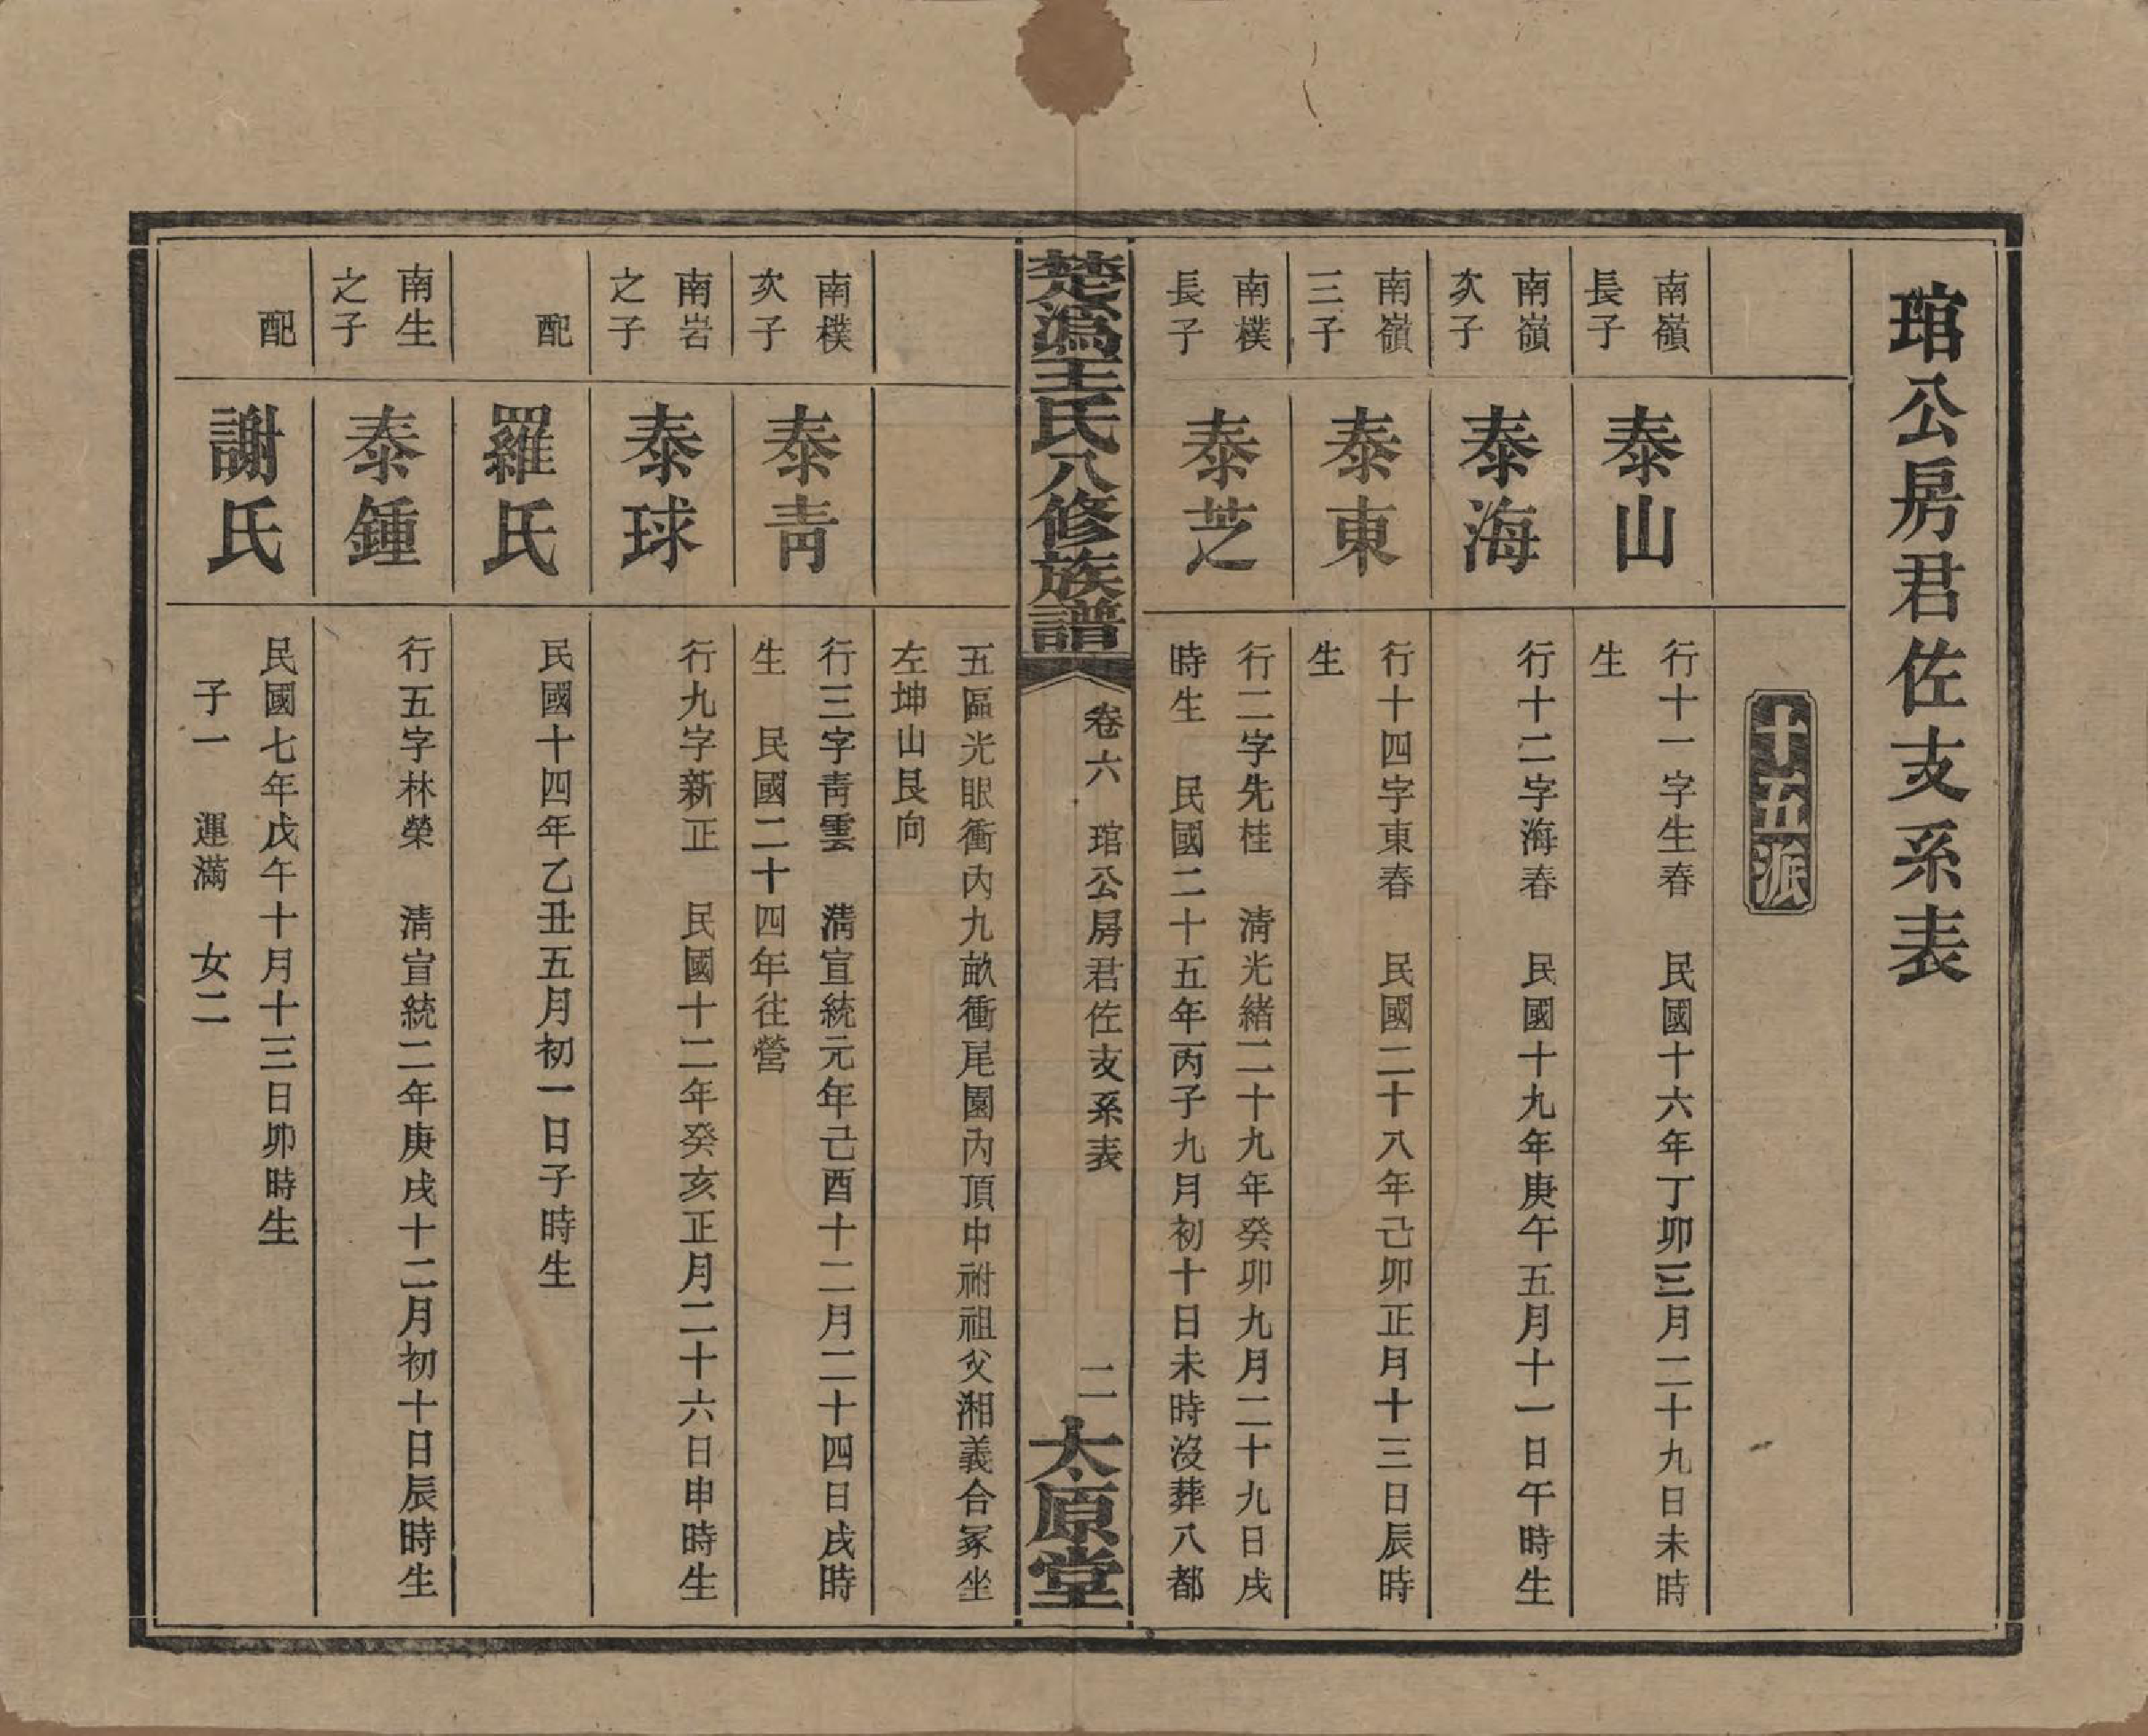 琯公房君佐支系表
十五派
南嶺
長子
泰山
行十一字生春　民國十六年丁卯三月二十九日未時
生
南嶺
次子
泰海
行十二字海春　民國十九年庚午五月十一日午時生
南嶺
三子
泰東
行十四字東春　民國二十八年己卯正月十三日辰時
生
南樸
長子
泰芝
行二字先桂　清光緒二十九年癸卯九月二十九日戌
時生　民國二十五年丙子九月初十日未時沒葬八都
楚溈王氏八修族譜
卷六　琯公房君佐支系表
二
太原堂
五區光眼衝內九畝衝尾園內頂中祔祖父湘義合冢坐
左坤山艮向
南樸
次子
泰青
行三字青雲　清宣統元年己酉十二月二十四日戌時
生　民國二十四年往營
南岩
之子
泰球
行九字新正　民國十二年癸亥正月二十六日申時生
配
羅氏
民國十四年乙丑五月初一日子時生
南生
之子
泰鍾
行五字林榮　清宣統二年庚戌十二月初十日辰時生
配
謝氏
民國七年戊午十月十三日卯時生
子一　運滿　女二